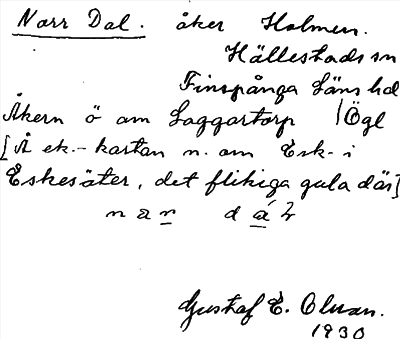 Norr Dal. åker Holmen.
Hällestads sn
Finspånga Läns hd
Åkern ö om Laggartorp /Ögl
[Å ek.-kartan n. om Esk- i
Eskesäter, det flikiga gula där]
nar d
Gustaf E. Olsson.
1930